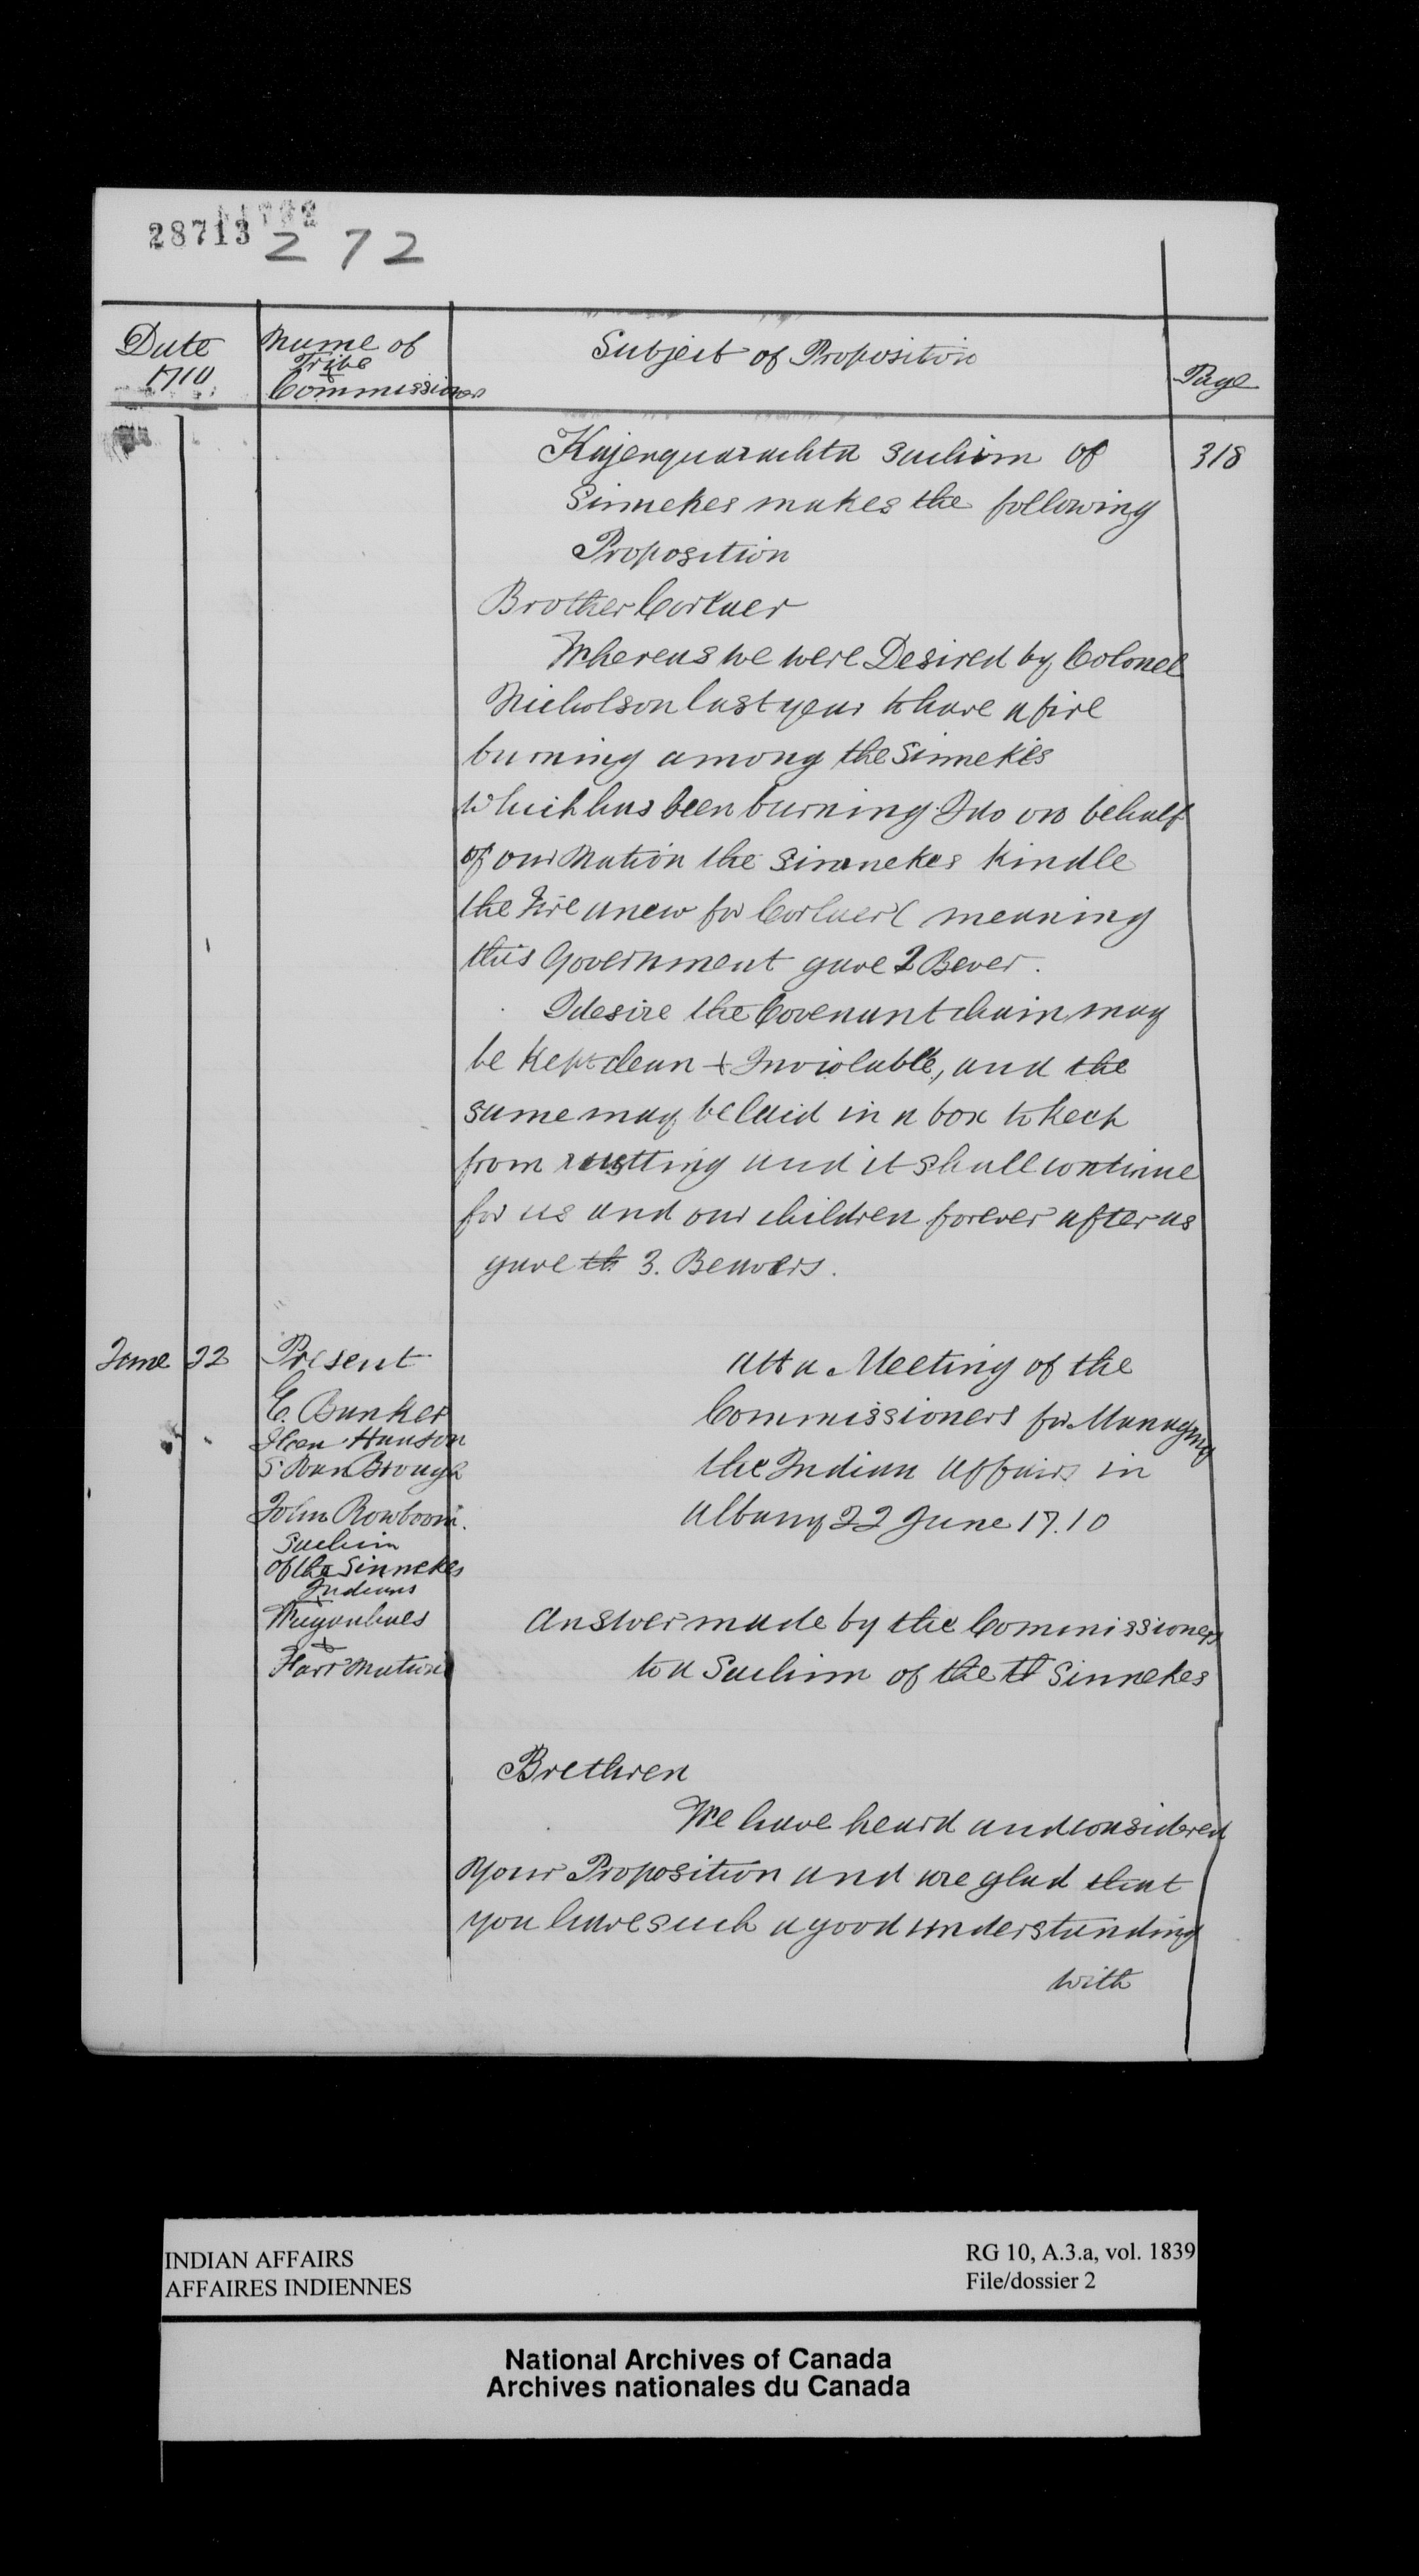 28713
272
Date
1710
Name of
Tribe
&
Commissioner
Subject of Proposition
Page
Kajenquarachta Sachim of
318
Sinnekes makes the following
Proposition
Brother Corlaer
Whereas we were Desired by Colonel
Nicholson last year to have a fire
burning among the Sinnekes
which has been burning I do on behalf
of our Nation the Sinnekes Kindle
the Fire anew for Corlaer ( meaning
this Government gave 2 Bever.
I desire the Covenant chain may
be Kept clean + Inviolable, and the
same may be laid in a box to keep
from rustting and it shall continue
for us and our children forever after us
gave th 3. Beavers.
June 22
Present
E. Banker
Hanson
John Rowboom.
Sachim
of the Sinnekes
Indians
&
Far Nation
Att a Meeting of the
Commissioners for Managing
the Indian Affairs in
Albany 22 June 17.10
Answer made by the Commissioners
to a Sachim of the Sinnekes
Brethren
We have heard and considered
your Proposition and are glad that
you have such a good understanding
with
INDIAN AFFAIRS
AFFAIRES INDIENNES
RG 10, A.3.a, vol. 1839
File/dossier 2
National Archives of Canada
Archives nationales du Canada